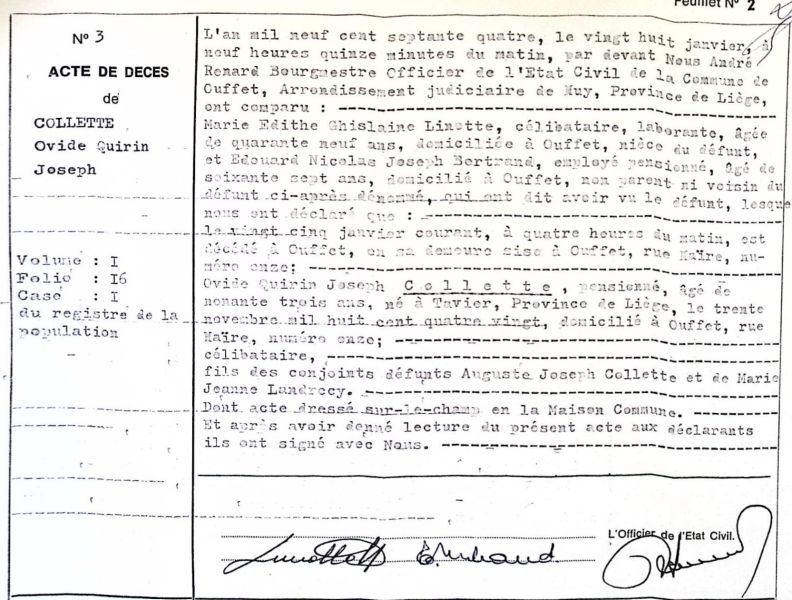 Feuillet N° 2
N° 3
ACTE DE DECES
de
COLLETTE
Ovide Quirin
Joseph
Volume : I
Folio : I6
Case : I
du registre de la
population
L'an mil neuf cent septante quatre, le vingt huit janvier, à
neuf heures quinze minutes du matin, par devant Nous André
Renard Bourgmestre Officier de l'Etat Civil de la Commune de
Ouffet, Arrondissement judiciaire de Huy, Province de Liège,
ont comparu :
Marie Edithe Ghislaine Linotte, célibataire, laborante, âgée
de quarante neuf ans, domiciliée à Ouffet, nièce du défunt,
et Edouard Nicolas Joseph Bertrand, employé pensionné, âgé de
soixante sept ans, domicilié à Ouffet, non parent ni voisin du
défunt ci-après dénommé, qui ont dit avoir vu le défunt, lesque
nous ont déclaré que :
le vingt cinq janvier courant, à quatre heures du matin, est
décédé à Ouffet, en sa demeure sise à Ouffet, rue Maïre, nu-
méro onze;
Ovide Quirin Joseph Collette, pensionné, âgé de
nonante trois ans, né à Tavier, Province de Liège, le trente
novembre mil huit cent quatre vingt, domicilié à Ouffet, rue
Maïre, numéro onze;
célibataire,
fils des conjoints défunts Auguste Joseph Collette et de Marie
Jeanne Landrecy.
Dont acte dressé sur-le-champ en la Maison Commune.
Et après avoir donné lecture du présent acte aux déclarants
ils ont signé avec Nous.
L'Officier de l'Etat Civil.